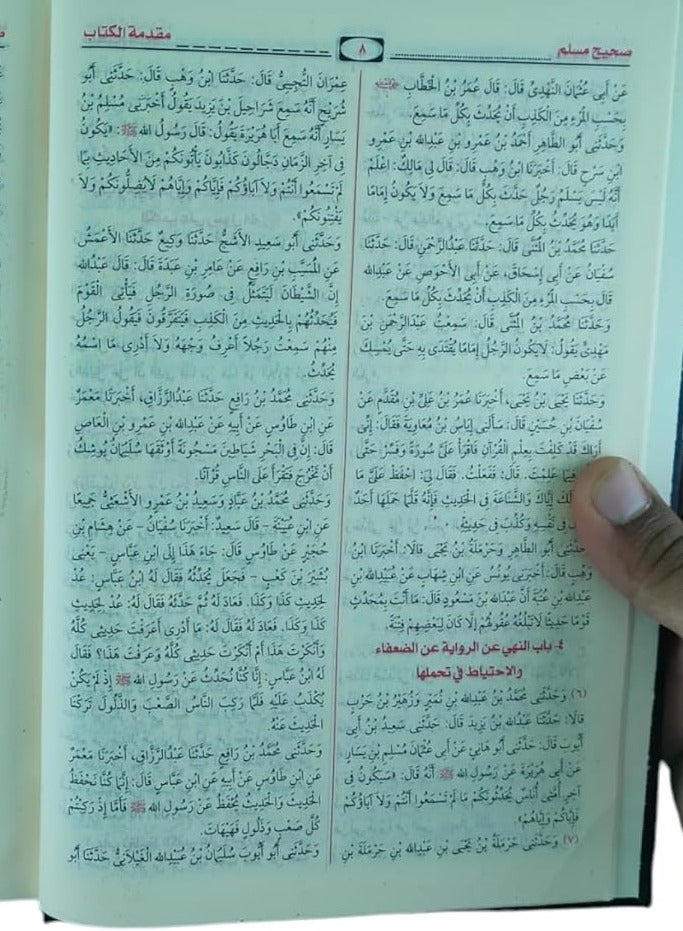 صحيح مسلم
٨
مقدمة الكتاب
عَنْ أَبِي عُثْمَانَ النَّهْدِيِّ قَالَ: قَالَ عُمَرُ بْنُ الْخَطَّابِ
بِحَسْبِ الْمَرْءِ مِنَ الْكَذِبِ أَنْ يُحَدِّثَ بِكُلِّ مَا سَمِعَ.
وَحَدَّثَنِي أَبُو الطَّاهِرِ أَحْمَدُ بْنُ عَمْرِو بْنِ عَبْدِاللهِ بْنِ عَمْرِو
ابْنِ سَرْحٍ قَالَ: أَخْبَرَنَا ابْنُ وَهْبٍ قَالَ: قَالَ لِي مَالِكٌ: اعْلَمْ
أَنَّهُ لَيْسَ يَسْلَمُ رَجُلٌ حَدَّثَ بِكُلِّ مَا سَمِعَ وَلَا يَكُونُ إِمَامًا
أَبَدًا وَهُوَ يُحَدِّثُ بِكُلِّ مَا سَمِعَ.
حَدَّثَنَا مُحَمَّدُ بْنُ الْمُثَنَّى قَالَ: حَدَّثَنَا عَبْدُالرَّحْمَنِ قَالَ: حَدَّثَنَا
سُفْيَانُ عَنْ أَبِي إِسْحَاقَ، عَنْ أَبِي الْأَحْوَصِ عَنْ عَبْدِاللهِ
قَالَ بِحَسْبِ الْمَرْءِ مِنَ الْكَذِبِ أَنْ يُحَدِّثَ بِكُلِّ مَا سَمِعَ.
وَحَدَّثَنَا مُحَمَّدُ بْنُ الْمُثَنَّى قَالَ: سَمِعْتُ عَبْدَالرَّحْمَنِ بْنَ
مَهْدِيٍّ يَقُولُ: لَا يَكُونُ الرَّجُلُ إِمَامًا يُقْتَدَى بِهِ حَتَّى يُمْسِكَ
عَنْ بَعْضِ مَا سَمِعَ
وَحَدَّثَنَا يَحْيَى بْنُ يَحْيَى، أَخْبَرَنَا عُمَرُ بْنُ عَلِيِّ بْنِ مُقَدَّمٍ عَنْ
سُفْيَانَ بْنِ حُسَيْنٍ قَالَ: سَأَلَنِي إِيَاسُ بْنُ مُعَاوِيَةَ فَقَالَ: إِنِّي
أَرَاكَ قَدْ كَلِفْتَ بِعِلْمِ الْقُرْآنِ فَاقْرَأْ عَلَيَّ سُورَةً وَفَسِّرْ حَتَّى
فِيمَا عَلِمْتَ. قَالَ: فَفَعَلْتُ. فَقَالَ لِيَ: احْفَظْ عَلَيَّ مَا
لَكَ إِيَّاكَ وَالشَّنَاعَةَ فِي الْحَدِيثِ فَإِنَّهُ قَلَّمَا حَمَلَهَا أَحَدٌ
فِي نَفْسِهِ وَكُذِّبَ فِي حَدِيثِهِ.
وَحَدَّثَنِي أَبُو الطَّاهِرِ وَحَرْمَلَةُ بْنُ يَحْيَى قَالَا: أَخْبَرَنَا ابْنُ
وَهْبٍ قَالَ: أَخْبَرَنِي يُونُسُ عَنِ ابْنِ شِهَابٍ عَنْ عُبَيْدِاللهِ بْنِ
عَبْدِاللهِ بْنِ عُتْبَةَ أَنَّ عَبْدَاللهِ بْنَ مَسْعُودٍ قَالَ: مَا أَنْتَ بِمُحَدِّثٍ
قَوْمًا حَدِيثًا لَا تَبْلُغُهُ عُقُولُهُمْ إِلَّا كَانَ لِبَعْضِهِمْ فِتْنَةً.
٤- باب النهي عن الرواية عن الضعفاء
والاحتياط في تحملها
(٦) وَحَدَّثَنِي مُحَمَّدُ بْنُ عَبْدِاللهِ بْنِ نُمَيْرٍ وَزُهَيْرُ بْنُ حَرْبٍ
قَالَا: حَدَّثَنَا عَبْدُاللهِ بْنُ يَزِيدَ قَالَ: حَدَّثَنِي سَعِيدُ بْنُ أَبِي
أَيُّوبَ قَالَ: حَدَّثَنِي أَبُو هَانِئٍ عَنْ أَبِي عُثْمَانَ مُسْلِمِ بْنِ يَسَارٍ
عَنْ أَبِي هُرَيْرَةَ عَنْ رَسُولِ اللهِ ﷺ أَنَّهُ قَالَ: «سَيَكُونُ فِي
آخِرِ أُمَّتِي أُنَاسٌ يُحَدِّثُونَكُمْ مَا لَمْ تَسْمَعُوا أَنْتُمْ وَلَا آبَاؤُكُمْ
فَإِيَّاكُمْ وَإِيَّاهُمْ»
(٧) وَحَدَّثَنِي حَرْمَلَةُ بْنُ يَحْيَى بْنِ عَبْدِاللهِ بْنِ حَرْمَلَةَ بْنِ
عِمْرَانَ التُّجِيبِيُّ قَالَ: حَدَّثَنَا ابْنُ وَهْبٍ قَالَ: حَدَّثَنِي أَبُو
شُرَيْحٍ أَنَّهُ سَمِعَ شَرَاحِيلَ بْنَ يَزِيدَ يَقُولُ أَخْبَرَنِي مُسْلِمُ بْنُ
يَسَارٍ أَنَّهُ سَمِعَ أَبَا هُرَيْرَةَ يَقُولُ: قَالَ رَسُولُ اللهِ ﷺ: «يَكُونُ
فِي آخِرِ الزَّمَانِ دَجَّالُونَ كَذَّابُونَ يَأْتُونَكُمْ مِنَ الْأَحَادِيثِ بِمَا
لَمْ تَسْمَعُوا أَنْتُمْ وَلَا آبَاؤُكُمْ فَإِيَّاكُمْ وَإِيَّاهُمْ لَا يُضِلُّونَكُمْ وَلَا
يَفْتِنُونَكُمْ».
وَحَدَّثَنِي أَبُو سَعِيدٍ الْأَشَجُّ حَدَّثَنَا وَكِيعٌ حَدَّثَنَا الْأَعْمَشُ
عَنِ الْمُسَيَّبِ بْنِ رَافِعٍ عَنْ عَامِرِ بْنِ عَبْدَةَ قَالَ: قَالَ عَبْدُاللهِ
إِنَّ الشَّيْطَانَ لَيَتَمَثَّلُ فِي صُورَةِ الرَّجُلِ فَيَأْتِي الْقَوْمَ
فَيُحَدِّثُهُمْ بِالْحَدِيثِ مِنَ الْكَذِبِ فَيَتَفَرَّقُونَ فَيَقُولُ الرَّجُلُ
مِنْهُمْ سَمِعْتُ رَجُلًا أَعْرِفُ وَجْهَهُ وَلَا أَدْرِي مَا اسْمُهُ
يُحَدِّثُ.
وَحَدَّثَنِي مُحَمَّدُ بْنُ رَافِعٍ حَدَّثَنَا عَبْدُالرَّزَّاقِ، أَخْبَرَنَا مَعْمَرٌ
عَنِ ابْنِ طَاوُسٍ عَنْ أَبِيهِ عَنْ عَبْدِاللهِ بْنِ عَمْرِو بْنِ الْعَاصِ
قَالَ: إِنَّ فِي الْبَحْرِ شَيَاطِينَ مَسْجُونَةً أَوْثَقَهَا سُلَيْمَانُ يُوشِكُ
أَنْ تَخْرُجَ فَتَقْرَأَ عَلَى النَّاسِ قُرْآنًا.
وَحَدَّثَنِي مُحَمَّدُ بْنُ عَبَّادٍ وَسَعِيدُ بْنُ عَمْرٍو الْأَشْعَثِيُّ جَمِيعًا
عَنِ ابْنِ عُيَيْنَةَ - قَالَ سَعِيدٌ: أَخْبَرَنَا سُفْيَانُ - عَنْ هِشَامِ بْنِ
حُجَيْرٍ عَنْ طَاوُسٍ قَالَ: جَاءَ هَذَا إِلَى ابْنِ عَبَّاسٍ - يَعْنِي
بُشَيْرَ بْنَ كَعْبٍ - فَجَعَلَ يُحَدِّثُهُ فَقَالَ لَهُ ابْنُ عَبَّاسٍ: عُدْ
لِحَدِيثِ كَذَا وَكَذَا. فَعَادَ لَهُ ثُمَّ حَدَّثَهُ فَقَالَ لَهُ: عُدْ لِحَدِيثِ
كَذَا وَكَذَا. فَعَادَ لَهُ فَقَالَ لَهُ: مَا أَدْرِي أَعَرَفْتَ حَدِيثِي كُلَّهُ
وَأَنْكَرْتَ هَذَا أَمْ أَنْكَرْتَ حَدِيثِي كُلَّهُ وَعَرَفْتَ هَذَا؟ فَقَالَ
لَهُ ابْنُ عَبَّاسٍ: إِنَّا كُنَّا نُحَدِّثُ عَنْ رَسُولِ اللهِ ﷺ إِذْ لَمْ يَكُنْ
يُكْذَبُ عَلَيْهِ فَلَمَّا رَكِبَ النَّاسُ الصَّعْبَ وَالذَّلُولَ تَرَكْنَا
الْحَدِيثَ عَنْهُ.
وَحَدَّثَنِي مُحَمَّدُ بْنُ رَافِعٍ حَدَّثَنَا عَبْدُالرَّزَّاقِ، أَخْبَرَنَا مَعْمَرٌ
عَنِ ابْنِ طَاوُسٍ عَنْ أَبِيهِ عَنِ ابْنِ عَبَّاسٍ قَالَ: إِنَّمَا كُنَّا نَحْفَظُ
الْحَدِيثَ وَالْحَدِيثُ يُحْفَظُ عَنْ رَسُولِ اللهِ ﷺ فَأَمَّا إِذْ رَكِبْتُمْ
كُلَّ صَعْبٍ وَذَلُولٍ فَهَيْهَاتَ.
وَحَدَّثَنِي أَبُو أَيُّوبَ سُلَيْمَانُ بْنُ عُبَيْدِاللهِ الْغَيْلَانِيُّ حَدَّثَنَا أَبُو